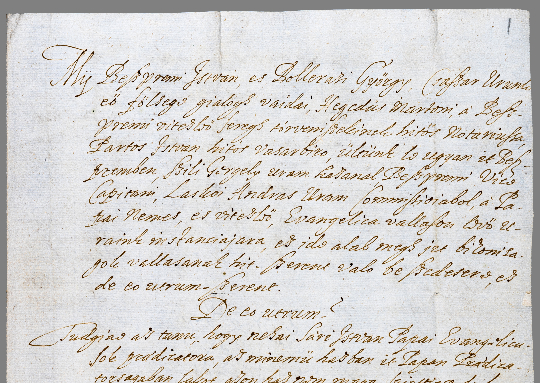 Mÿ Bespremi Istvan es Bolleran György, Csaszar Urunk
eö fölsege gialogh vaidai, Hegedüs Martoni, a Besz-
premi vitezlö seregh törvenszekinek hitös Notariussa
Bartos Istvan hitös vasarbiro, ültünk le ugyan it Bes-
premben, Gergely uram hadanal Besspremi Vice
Capitani, Laskoi Andras Uram Commissioiabol, a Pa-
pai Nemes, es vitezlö, Evangelica vallason levö U-
raink instanciajara, es ide alab megh irt bizonisa-
gok vallasanak hit szerent valo be szedesere, es
de eo utrum szerent.
De eo utrum?
Tudgiae az tanu, hogy nehai Sari Istvan Papai Evangelicu-
sok predicatora, az minemü hazban it Papan Predica-
torsagaban lakot, azon haz nem